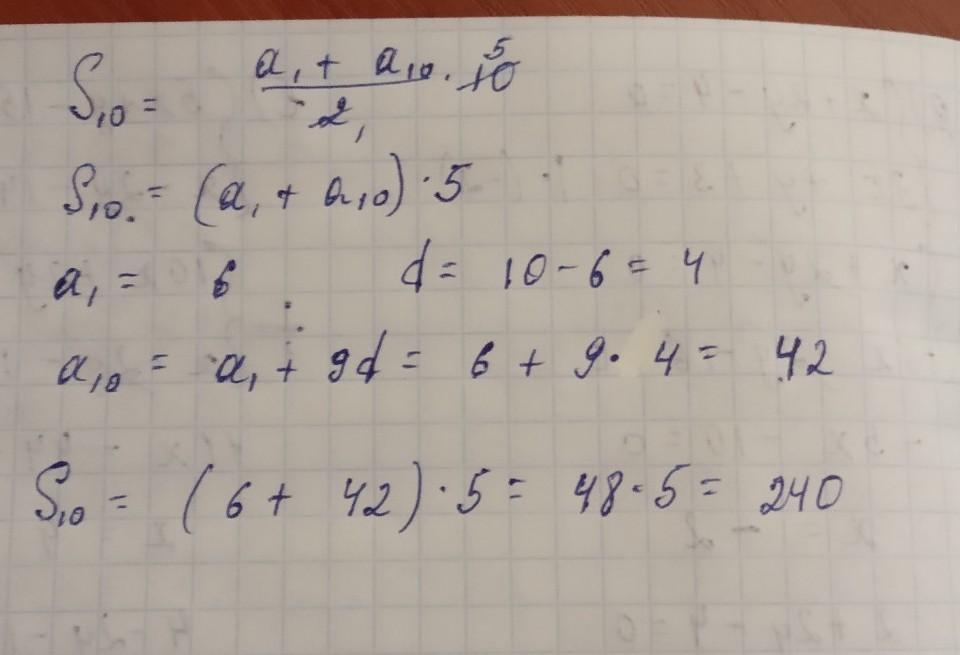 S₁₀ = (a₁ + a₁₀)/2 · 10 5
S₁₀ = (a₁ + a₁₀) · 5
a₁ = 6 d = 10 - 6 = 4
a₁₀ = a₁ + 9d = 6 + 9 · 4 = 42
S₁₀ = (6 + 42) · 5 = 48 · 5 = 240